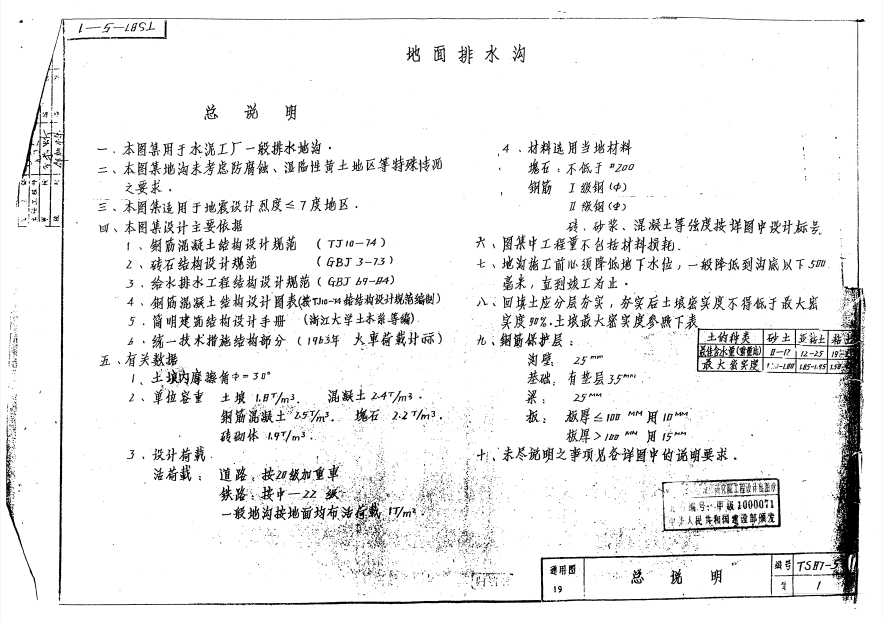 TS87-5-1
地面排水沟
总说明
一、本图集用于水泥工厂一般排水地沟.
二、本图集地沟未考虑防腐蚀、湿陷性黄土地区等特殊情况
之要求.
三、本图集适用于地震设计烈度≤7度地区.
四、本图集设计主要依据
1、钢筋混凝土结构设计规范 (TJ10-74)
2、砖石结构设计规范 (GBJ3-73)
3、给水排水工程结构设计规范(GBJ69-84)
4、钢筋混凝土结构设计图表(按TJ10-74 结构设计规范编制)
5、简明建筑结构设计手册 (浙江大学土木系等编)
6、统一技术措施结构部分 (1963年 火车荷载计示)
五、有关数据
1、土壤内摩擦角Φ=30°
2、单位容重 土壤 1.8T/m3. 混凝土2.4T/m3.
钢筋混凝土 2.5T/m3. 塊石 2.2T/m3.
砖砌体 1.9T/m3.
3、设计荷载
活荷载: 道路:按20级加重車
铁路:按中-22级
一般地沟按地面均布活荷载 1T/m2
4、材料选用当地材料
塊石:不低于#200
钢筋 I级钢(Φ)
II级钢(Φ)
砖、砂浆、混凝土等强度按详图中设计标号
六、图集中工程量不包括材料损耗.
七、地沟施工前必须降低地下水位,一般降低到沟底以下500
毫米,直到竣工为止.
八、回填土应分层夯实,夯实后土壤密实度不得低于最大密
实度90%.土壤最大密实度参照下表
土的种类 砂土 亚粘土 粘土
最佳含水量(重量%) 8-17 12-25
最大密实度 1.85-1.95
九、钢筋保护层:
沟壁: 25mm
基础: 有垫层35mm
梁: 25mm
板: 板厚≤100mm用10mm
板厚>100mm用15mm
十、未尽说明之事项见各详图中的说明要求.
编号:甲级1000071
中华人民共和国建设部颁发
通用图
19
总说明
编号 TS87-5
1